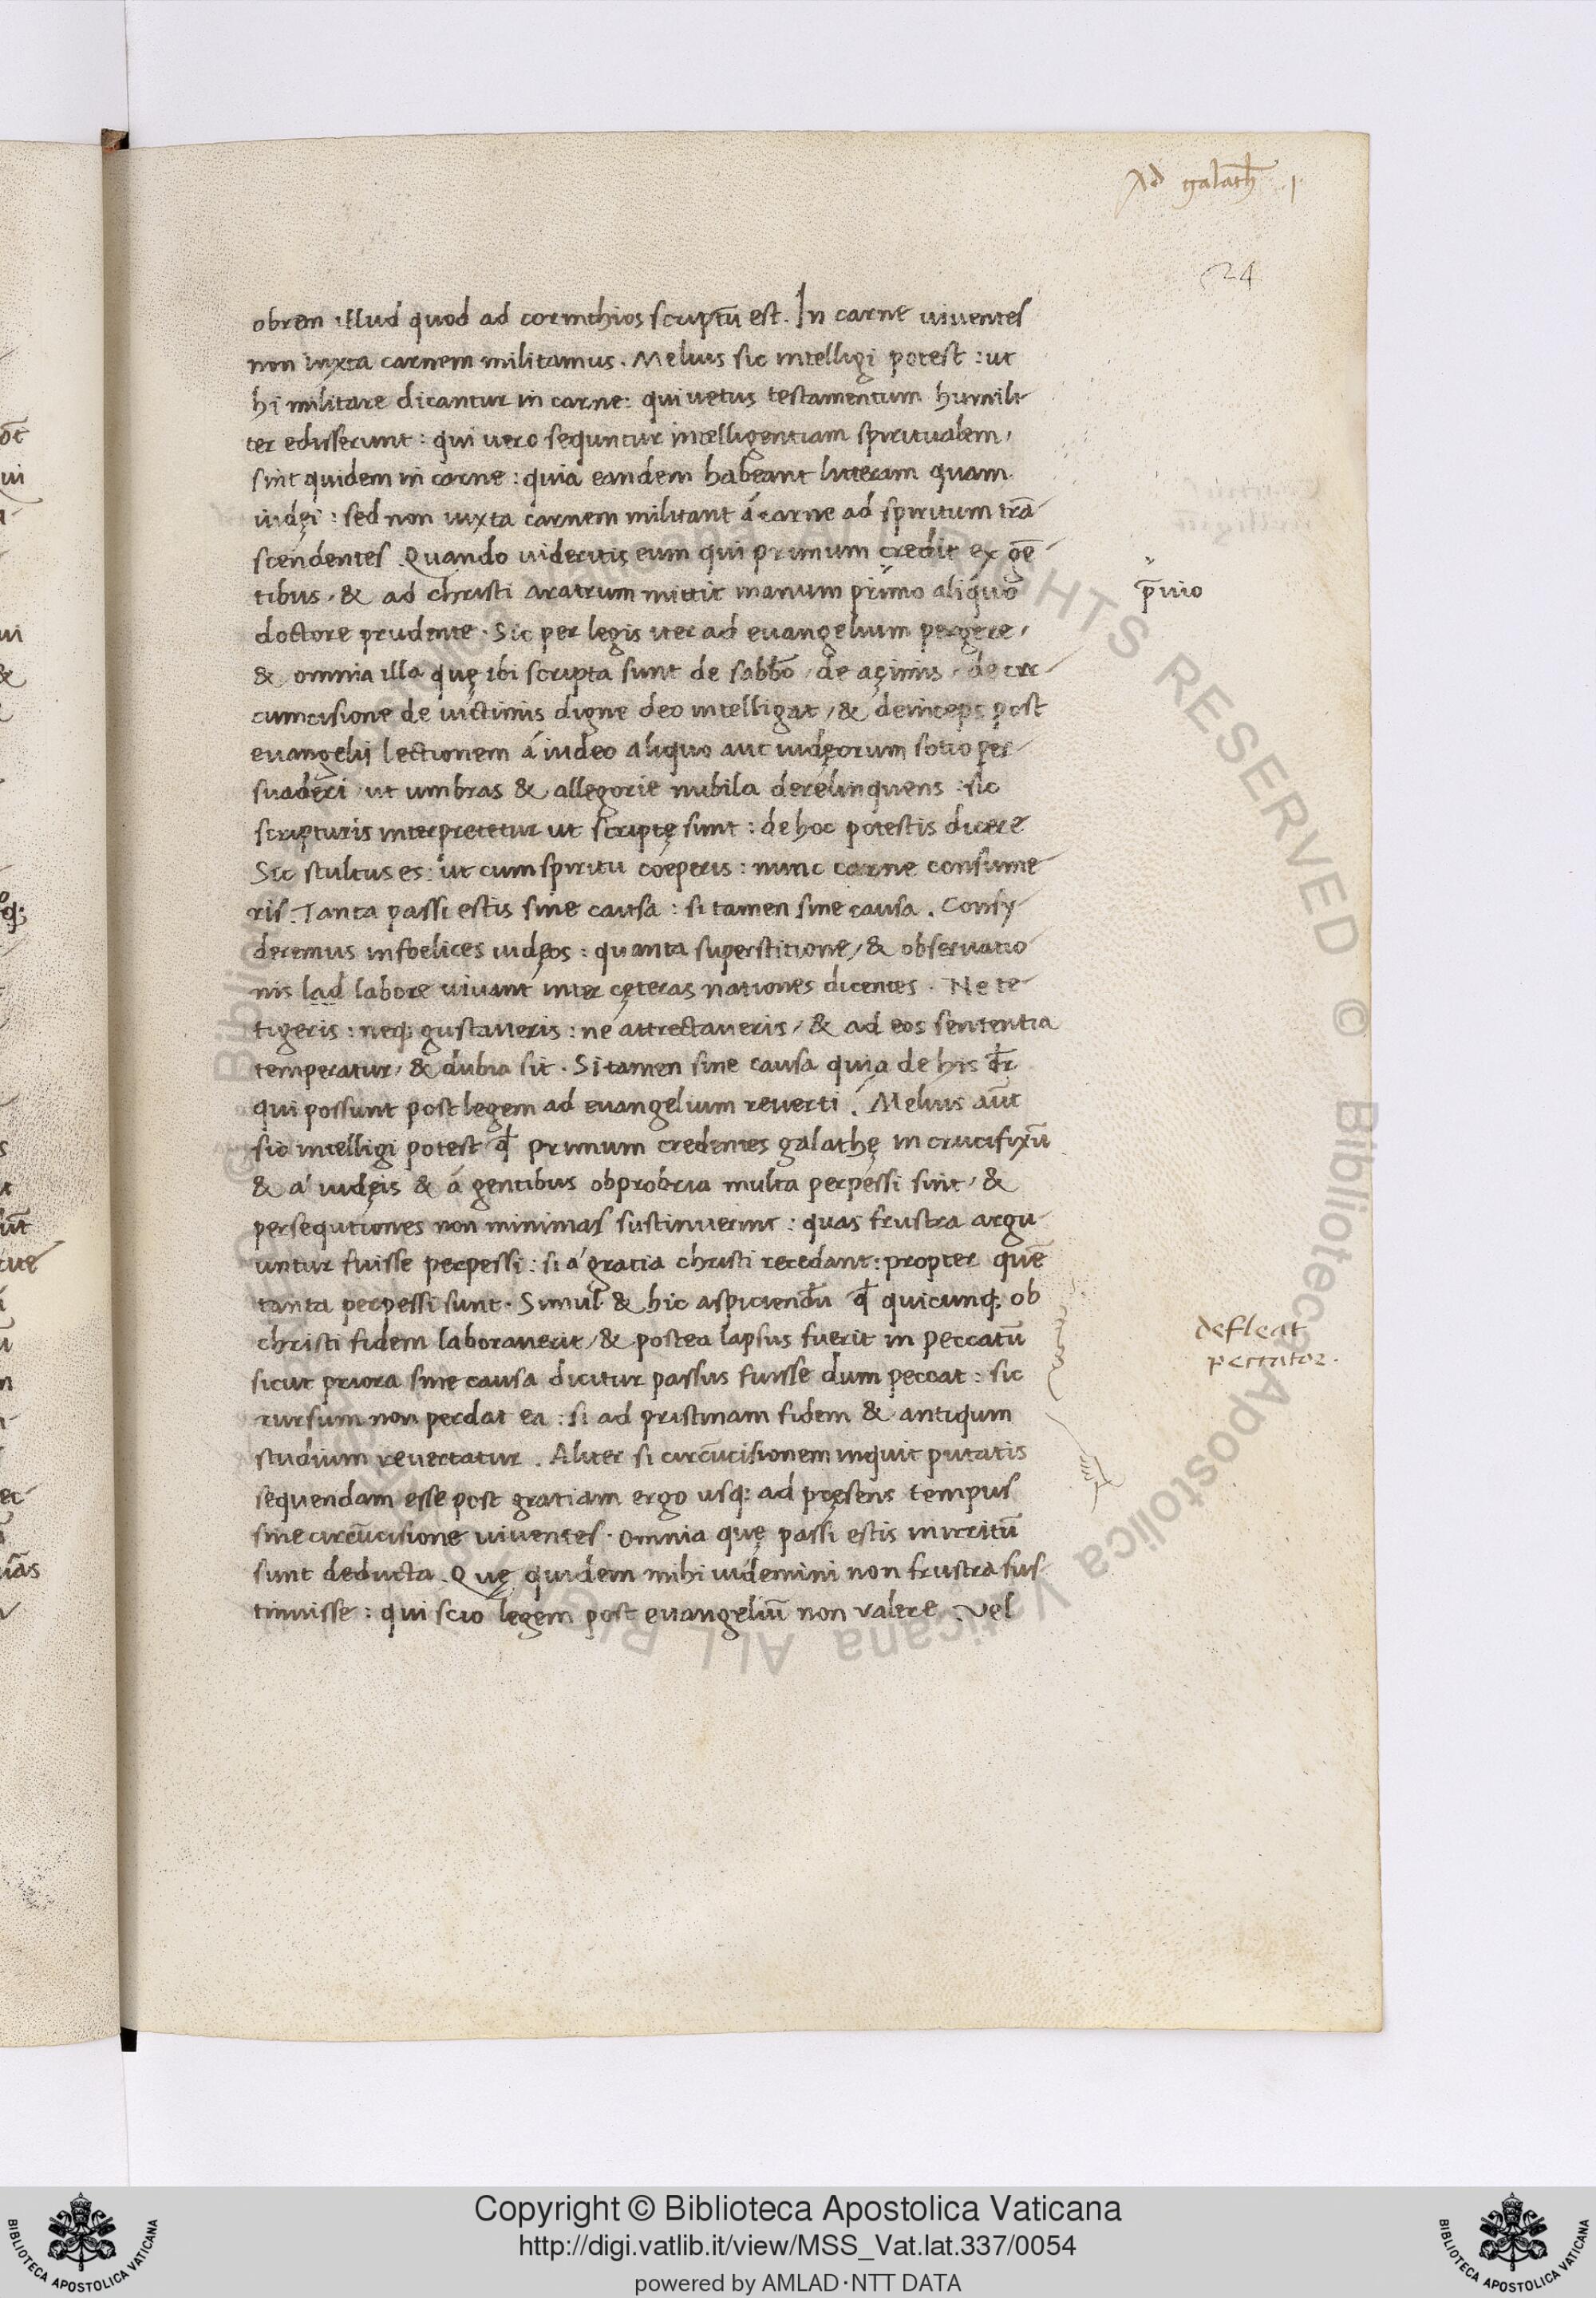 Ad galath̄ .1.
24
obrem illud quod ad corinthios scriptū est. In carne uiuentes
non iuxta carnem militamus. Melius sic intelligi potest: ut
hi militare dicantur in carne: qui uetus testamentum humili
ter edisserunt: qui uero sequntur intelligentiam spiritualem,
sint quidem in carne: quia eandem habeant litteram quam
iudęi: sed non iuxta carnem militant á carne ad spiritum trā
scendentes. Quando uideritis eum qui primum credit ex gē
tibus, & ad christi aratrum mittit manum primo aliquo
p̄uio
doctore prudente. Sic per legis iter ad euangelium pergere,
& omnia illa quę ibi scripta sunt de sabb̄o, de açimis, de cir
cumcisione de uictimis digne deo intelligat, & deinceps post
euangelij lectionem á iudeo aliquo aut iudęorum sotio per
suaderi, ut umbras & allegorie nubila derelinquens: sic
scripturis interpretetur ut scriptę sunt: de hoc potestis dicere
Sic stultus es: ut cum spiritu coeperis: nunc carne consume
ris. Tanta passi estis sine causa: si tamen sine causa. Consy
deremus infoelices iudęos: quanta superstitione, & obseruatio
nis lad labore uiuant inter cęteras nationes dicentes. Ne te
tigeris: neq; gustaueris: ne attrectaueris, & ad eos sententia
temperatur, & dubia sit. Si tamen sine causa quia de his dr̄
qui possunt post legem ad euangelium reuerti. Melius aūt
sic intelligi potest qd̄ primum credentes galathę in crucifixū
& a' iudęis & á gentibus obprobria multa perpessi sint, &
persequtiones non minimas sustinuerint: quas frustra argu
untur fuisse perpessi: si a' gratia christi recedant: propter quē
tanta perpessi sunt. Simul & hic aspiciendū qd̄ quicunq; ob
christi fidem laborauerit, & postea lapsus fuerit in peccatū
defleat
peccator.
sicut priora sine causa dicitur passus fuisse dum peccat: sic
rursum non perdat ea: si ad pristinam fidem & antiqum
studium reuertatur. Aliter si circūcisionem inquit putatis
sequendam esse post gratiam ergo usq; ad pręsens tempus
sine circūcisione uiuentes. Omnia quę passi estis in irritū
sunt deducta. Quę quidem mihi uidemini non frustra sus
tinuisse: qui scio legem post euangeliū non valere. Vel
Copyright © Biblioteca Apostolica Vaticana
http://digi.vatlib.it/view/MSS_Vat.lat.337/0054
powered by AMLAD·NTT DATA